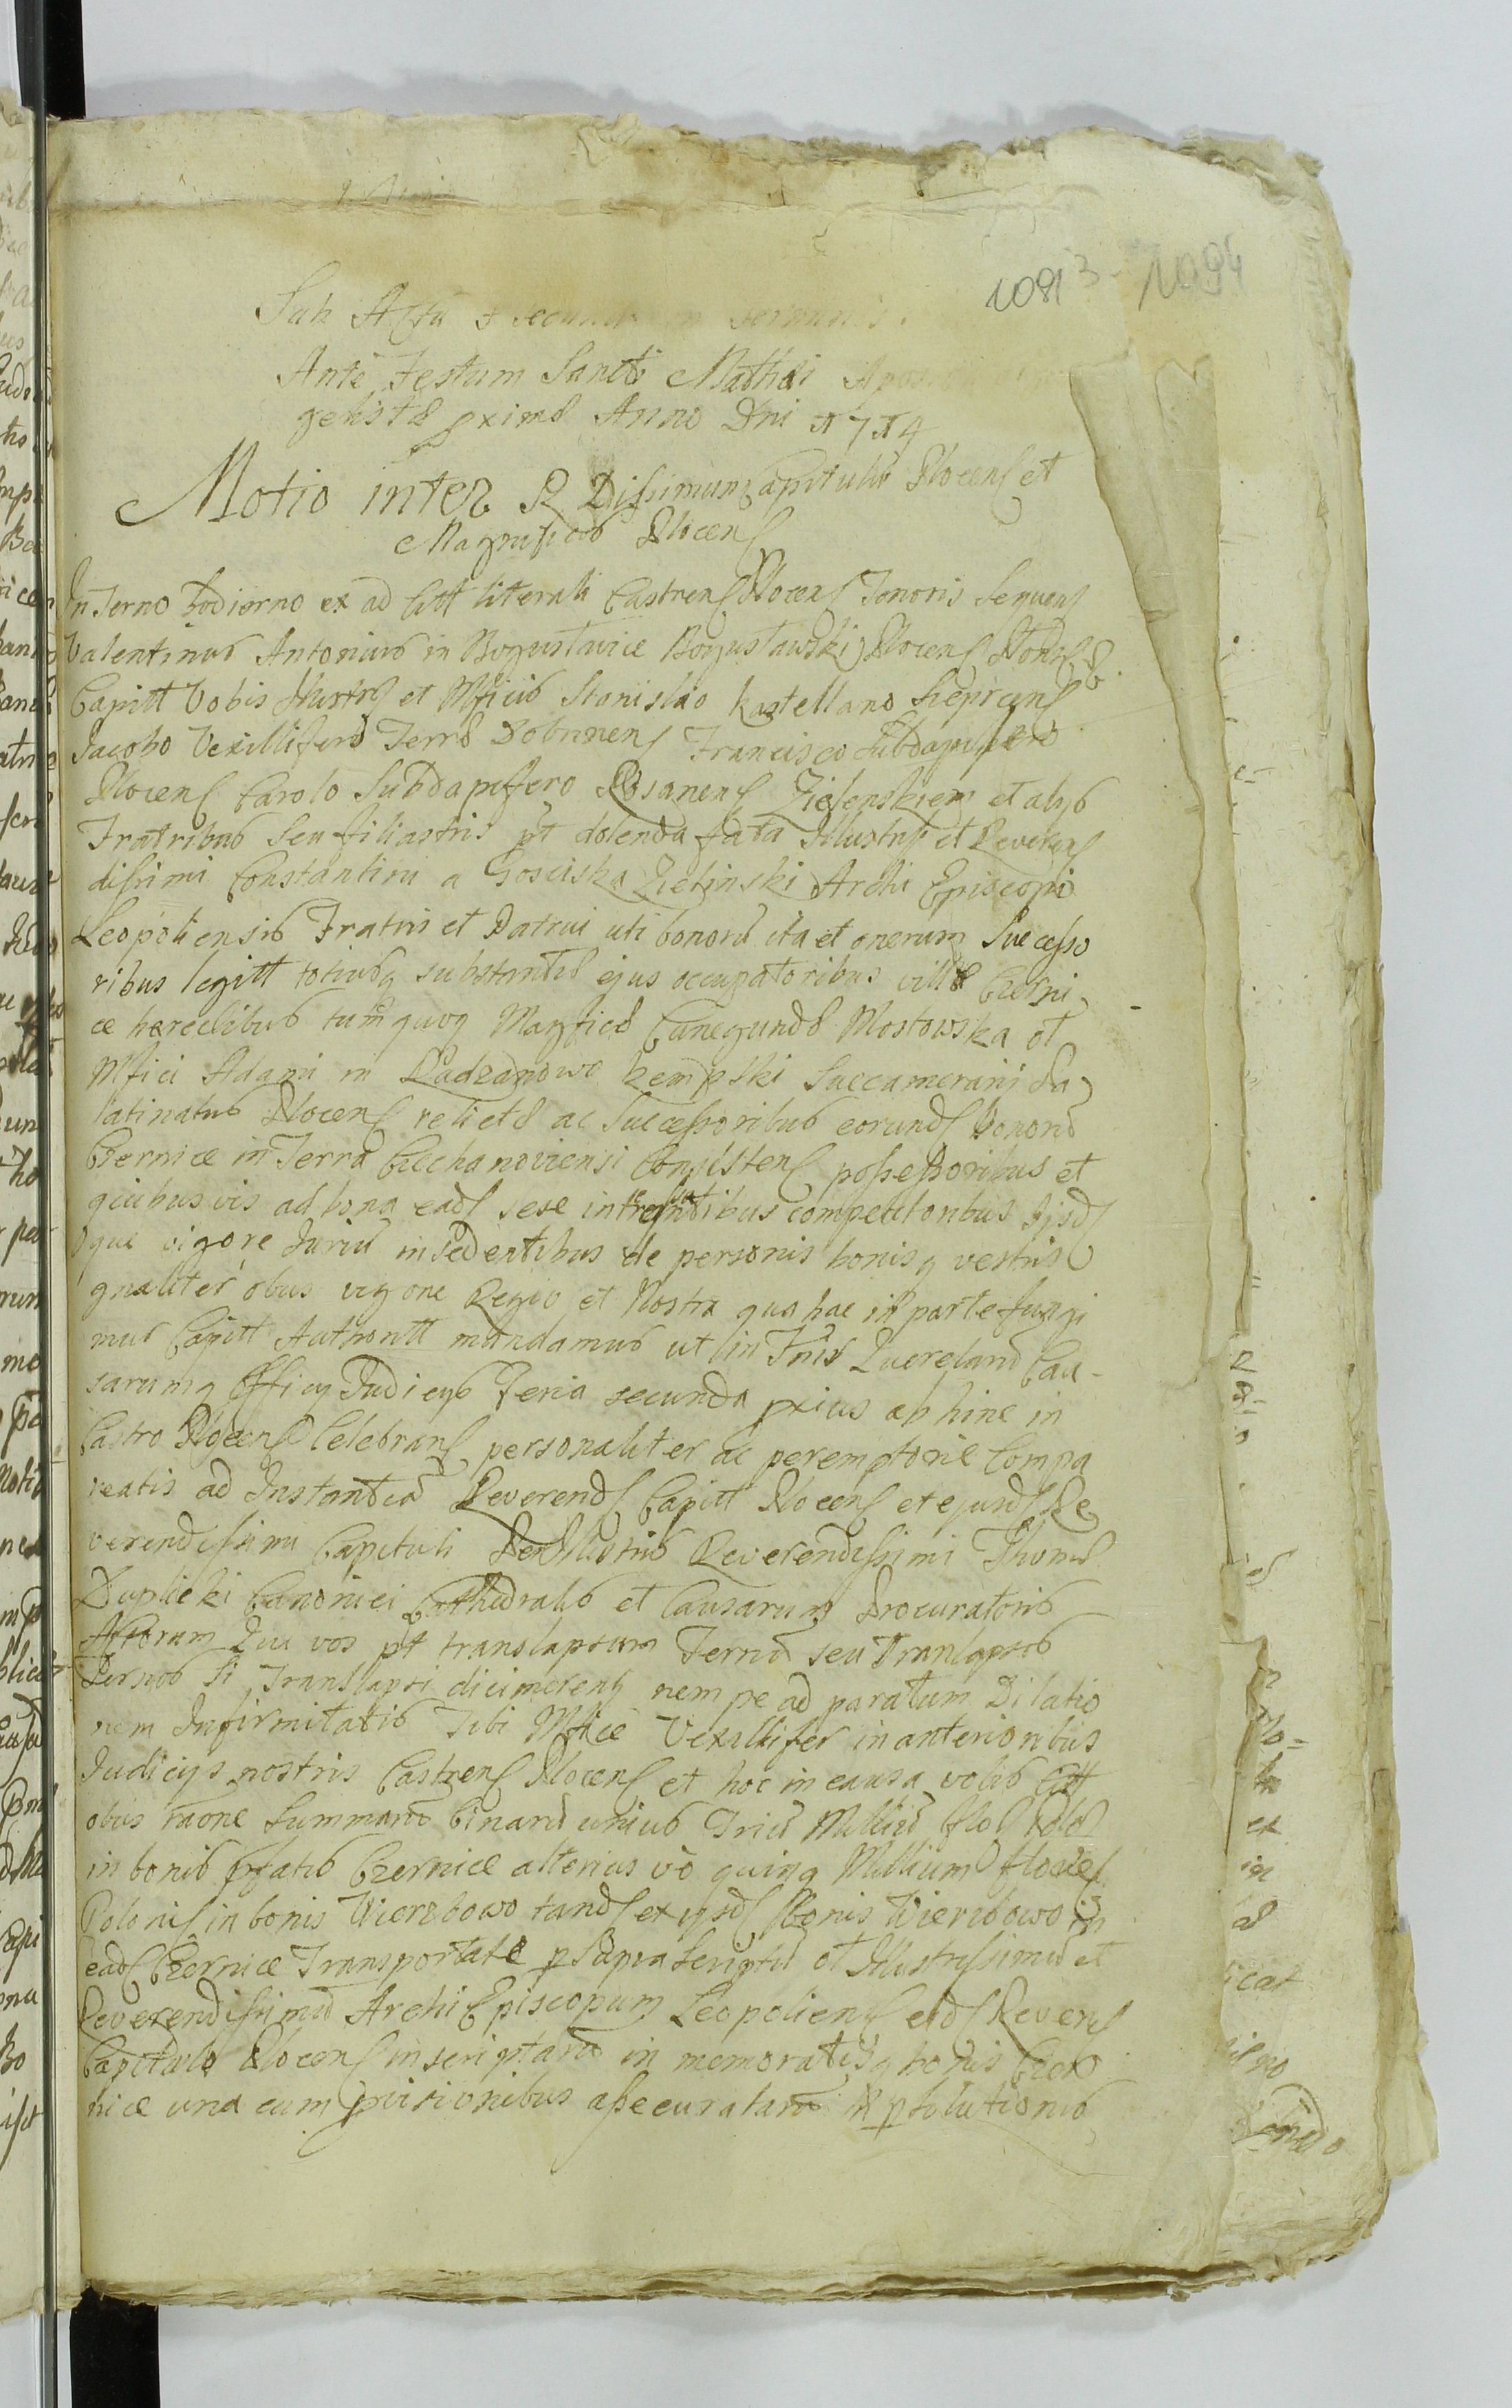 10813 1094
Sub Actu
Ante Festum Sancti Mathai
gelistæ pximæ Anno Dni 1714
Motio inter R Dissimum Capitulum Plocens et
Magnificos Plocens
In Terno hodierno ex ad Citt literali Castrens Plocens Tenoris Sequens
Valentinus Antonius in Bogusławice Bogusławski Plocens
Capitt Vobis Illustris et Mficis Stanislao Kastellano Sieprcens
Jacobo Vexillifero Terræ Dobrinens Francisco Subdapifero
Plocens Carolo Subdapifero Rosanens Zielenskiem et alijs
Fratribus Seu filiastris pt dolenda fata Illustris et Reveren
dissimi Constantini a Gosciska Zielinski Archi Episcopi
Leopoliensis Fratris et Patrui uti bonorū ita et onerum Successo
ribus legitt totiusq substantiæ ejus occupatoribus villæ Czerni
ce heredibus tum quoq Magficæ Cunegundæ Mostowska et
Mfici Adami in Radzanowo Kempski Succamerarij Pa
latinatus Plocens relictæ ac Successoribus eorunds bonorū
Czernice in Terra Ciechanoviensi Consistens possessoribus et
quibusvis ad bona eads sese intromittibus competitoribus ijsds
que vigore Jurium insedentibus de personis bonisq vestris
gnaliter obus vigore Regio et Nostra qua hac in parte fungi
mur Capitt Authoritt mandamus ut in Tnis Querelarū Cau-
sarumq Officij Judicijs Feria secunda pxius ab hinc in
Castro Plocens Celebrans personaliter ac peremptorie Compa
reatis ad Instantiā Reverends Capitt Plocens et ejusds Re
verendissimi Capituli PerIllustris Reverendissimi Thomæ
Duplicki Canonici Cathedralis et Causarum Procuratoris
Actorum Qui vos pt translapsum Ternū seu Translapsos
Ternos Si Translapsi dicimerens nempe ad paratum Dilatio
nem Infirmitatis Tibi Mfice Vexillifer in anterioribus
Judicijs nostris Castrens Plocens et hoc in causa vobis Citt
obus raone Summarū binarū unius Triū Milliū flos Pols
in bonis pfatis Czernice alterius vō quinq Millium florēs
Polonis in bonis Wierzbowo tands ex ijsds bonis Wierzbowo in
eads Czernice Transportatæ p Supra Scriptū et Illustrissimū et
Reverendissimū Archi Episcopum Leopoliens eids Reveren
Capitulo Plocens inscriptarū in memoratisq bonis Czer
nice una cum pvisionibus assecuratarū psolutionis